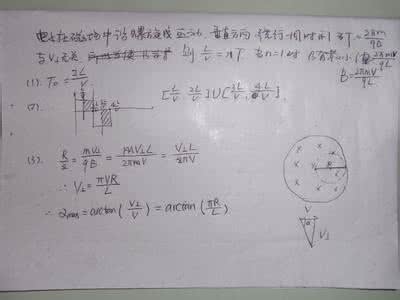 电子在磁场中沿螺旋线运动,垂直方向绕行一周时间 T = 2πm/qB
与V⊥无关 由 L/V = nT 当n=1时 B有最小 B = 2πmV/qL
(1). T₀ = 2L/V
(2)
[L/V 2L/V]∪[3L/V, 4L/V]
(3). R/2 = mV⊥/qB = mV⊥L/2πmV = V⊥L/2πV
∴ V⊥ = πVR/L
∴ 2max = arctan(V⊥/V) = arctan(πR/L)
R
V
V⊥